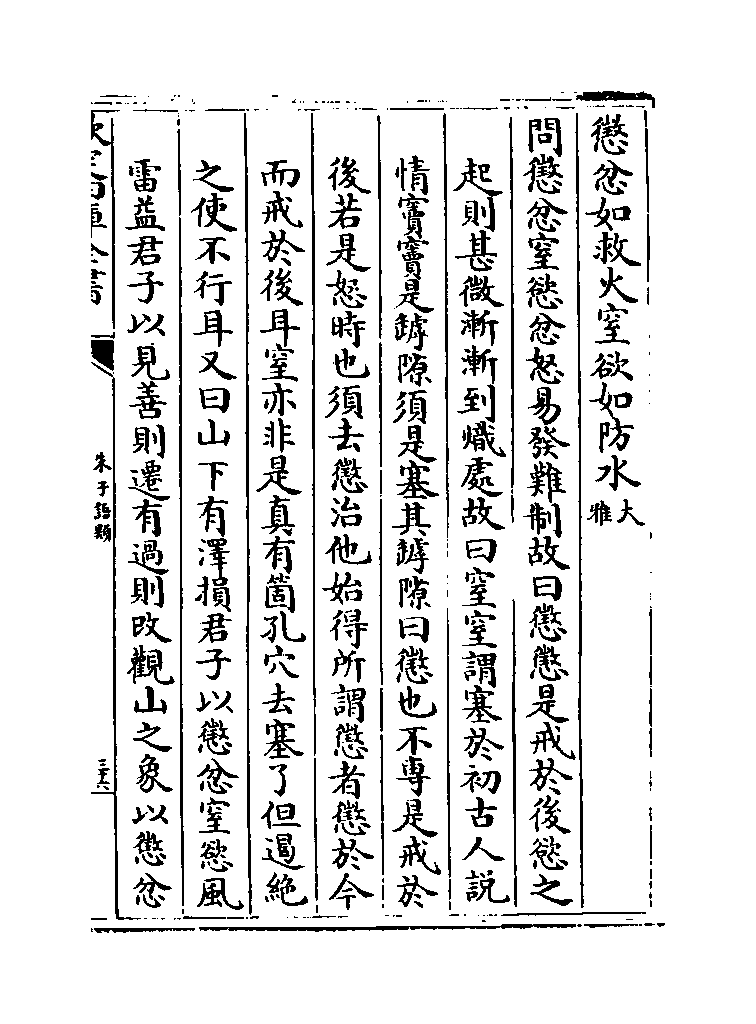 懲忿如救火窒欲如防水大雅
問懲忿窒慾忿怒易發難制故曰懲懲是戒於後慾之
起則甚微漸漸到熾處故曰窒窒謂塞於初古人說
情竇竇是罅隙須是塞其罅隙曰懲也不專是戒於
後若是怒時也須去懲治他始得所謂懲者懲於今
而戒於後耳窒亦非是真有箇孔穴去塞了但遏絶
之使不行耳又曰山下有澤損君子以懲忿窒慾風
雷益君子以見善則遷有過則改觀山之象以懲忿
欽定四庫全書
朱子語類
三十六